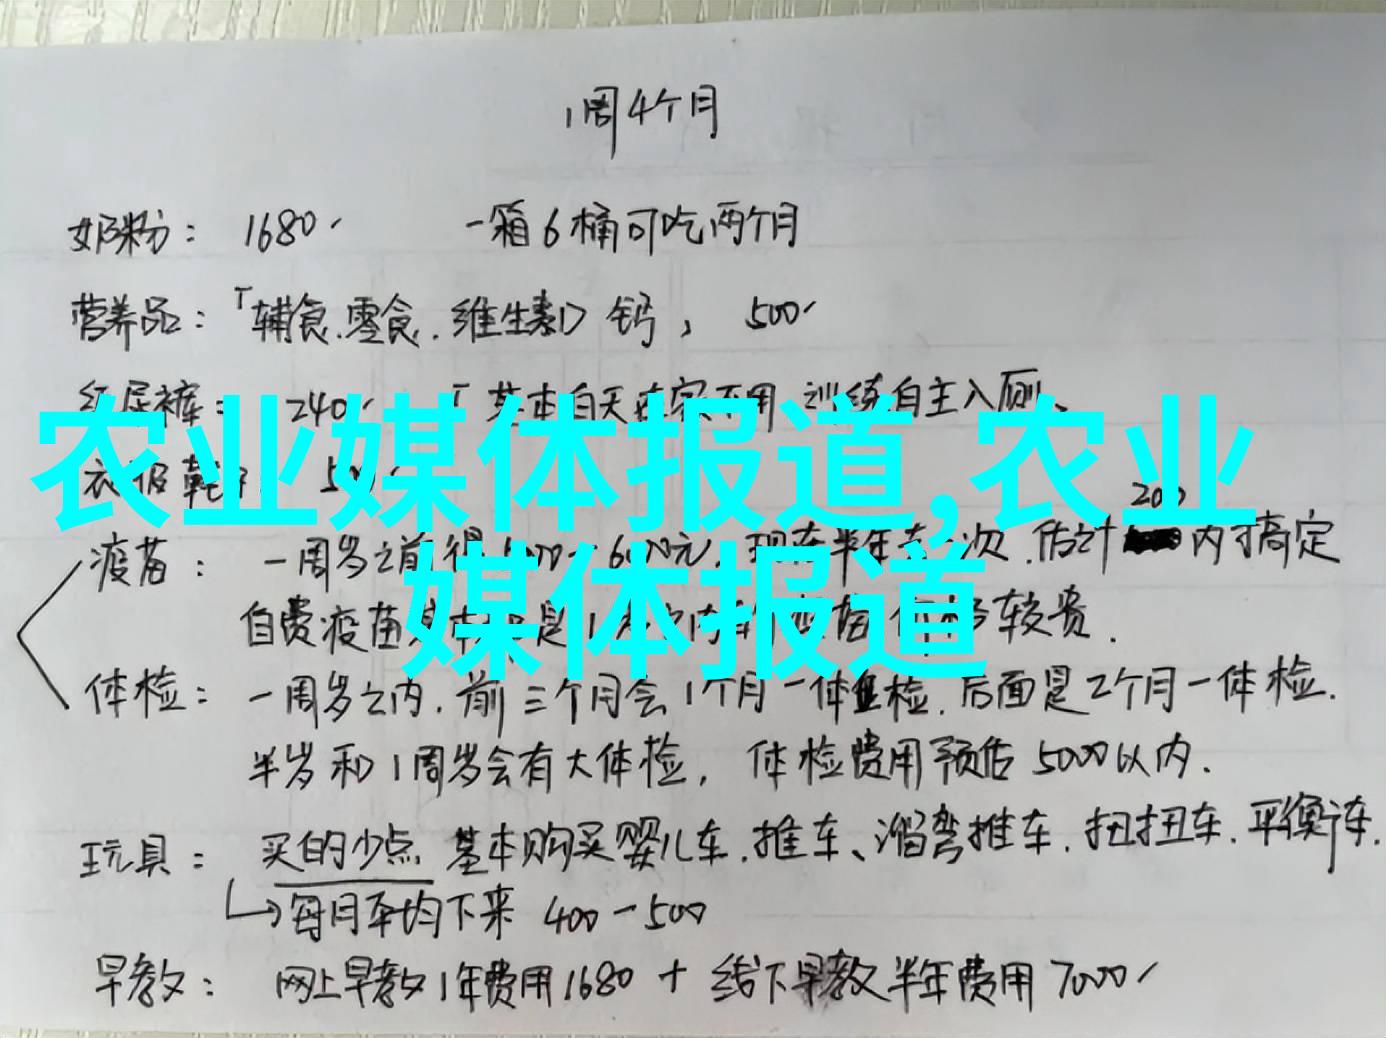 1周4个月
奶粉： 1680 一箱6桶可吃两个月
营养品：「辅食.零食.维生素D 钙， 500
纸尿裤： 240 「基本白天在家不用 训练自主入厕、
农业媒体报道,农业
媒体报道
200
疫苗： 一周岁之前 元, 现在半年 一次.估计 内可搞定
自费疫苗基本 是1 较贵.
体检： 一周岁之内. 前三个月会1个月一体检. 后面是2个月一体检.
半岁和1周岁会有大体检, 体检费用预估5000以内.
玩具： 买的少点 基本购买婴儿车.推车、溜弯推车.扭扭车.平衡车.
每月平均下来 400-500
早教： 网上早教1年费用1680 + 线下早教半年费用7000